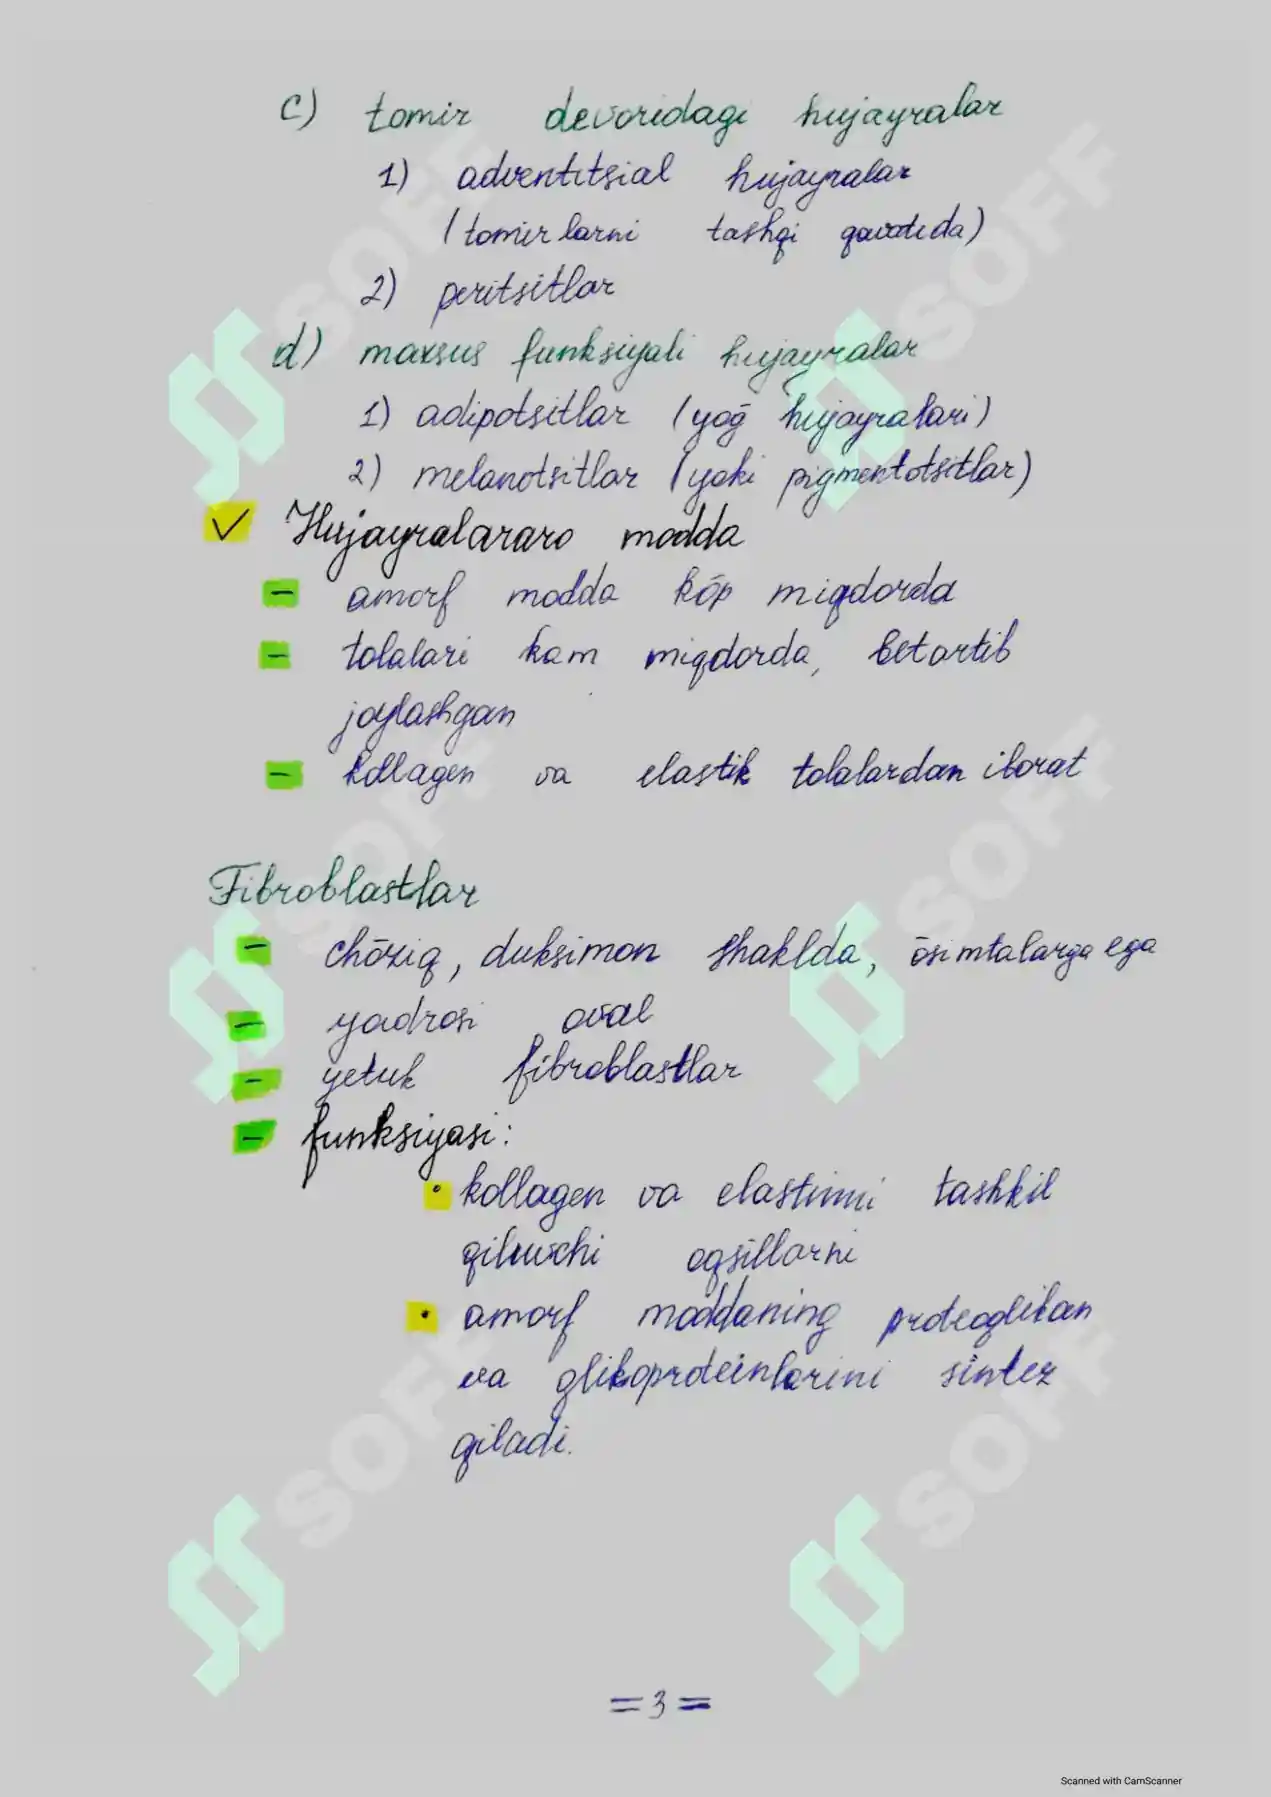 c) tomir devoridagi hujayralar
1) adventitsial hujayralar
(tomirlarni tashqi qavatida)
2) peritsitlar
d) maxsus funksiyali hujayralar
1) adipotsitlar (yoḡ hujayralari)
2) melanotsitlar (yoki pigmentotsitlar)
✓ Hujayralararo modda
- amorf modda kōp miqdorda
- tolalari kam miqdorda, betartib
joylashgan
- kollagen va elastik tolalardan iborat
Fibroblastlar
- chōziq, duksimon shaklda, ōsimtalarga ega
- yadrosi oval
- yetuk fibroblastlar
- funksiyasi:
• kollagen va elastinni tashkil
qiluvchi oqsillarni
• amorf moddaning proteoglikan
va glikoproteinlarini sintez
qiladi.
= 3 =
SOFF
SOFF
SOFF
SOFF
SOFF
SOFF
Scanned with CamScanner